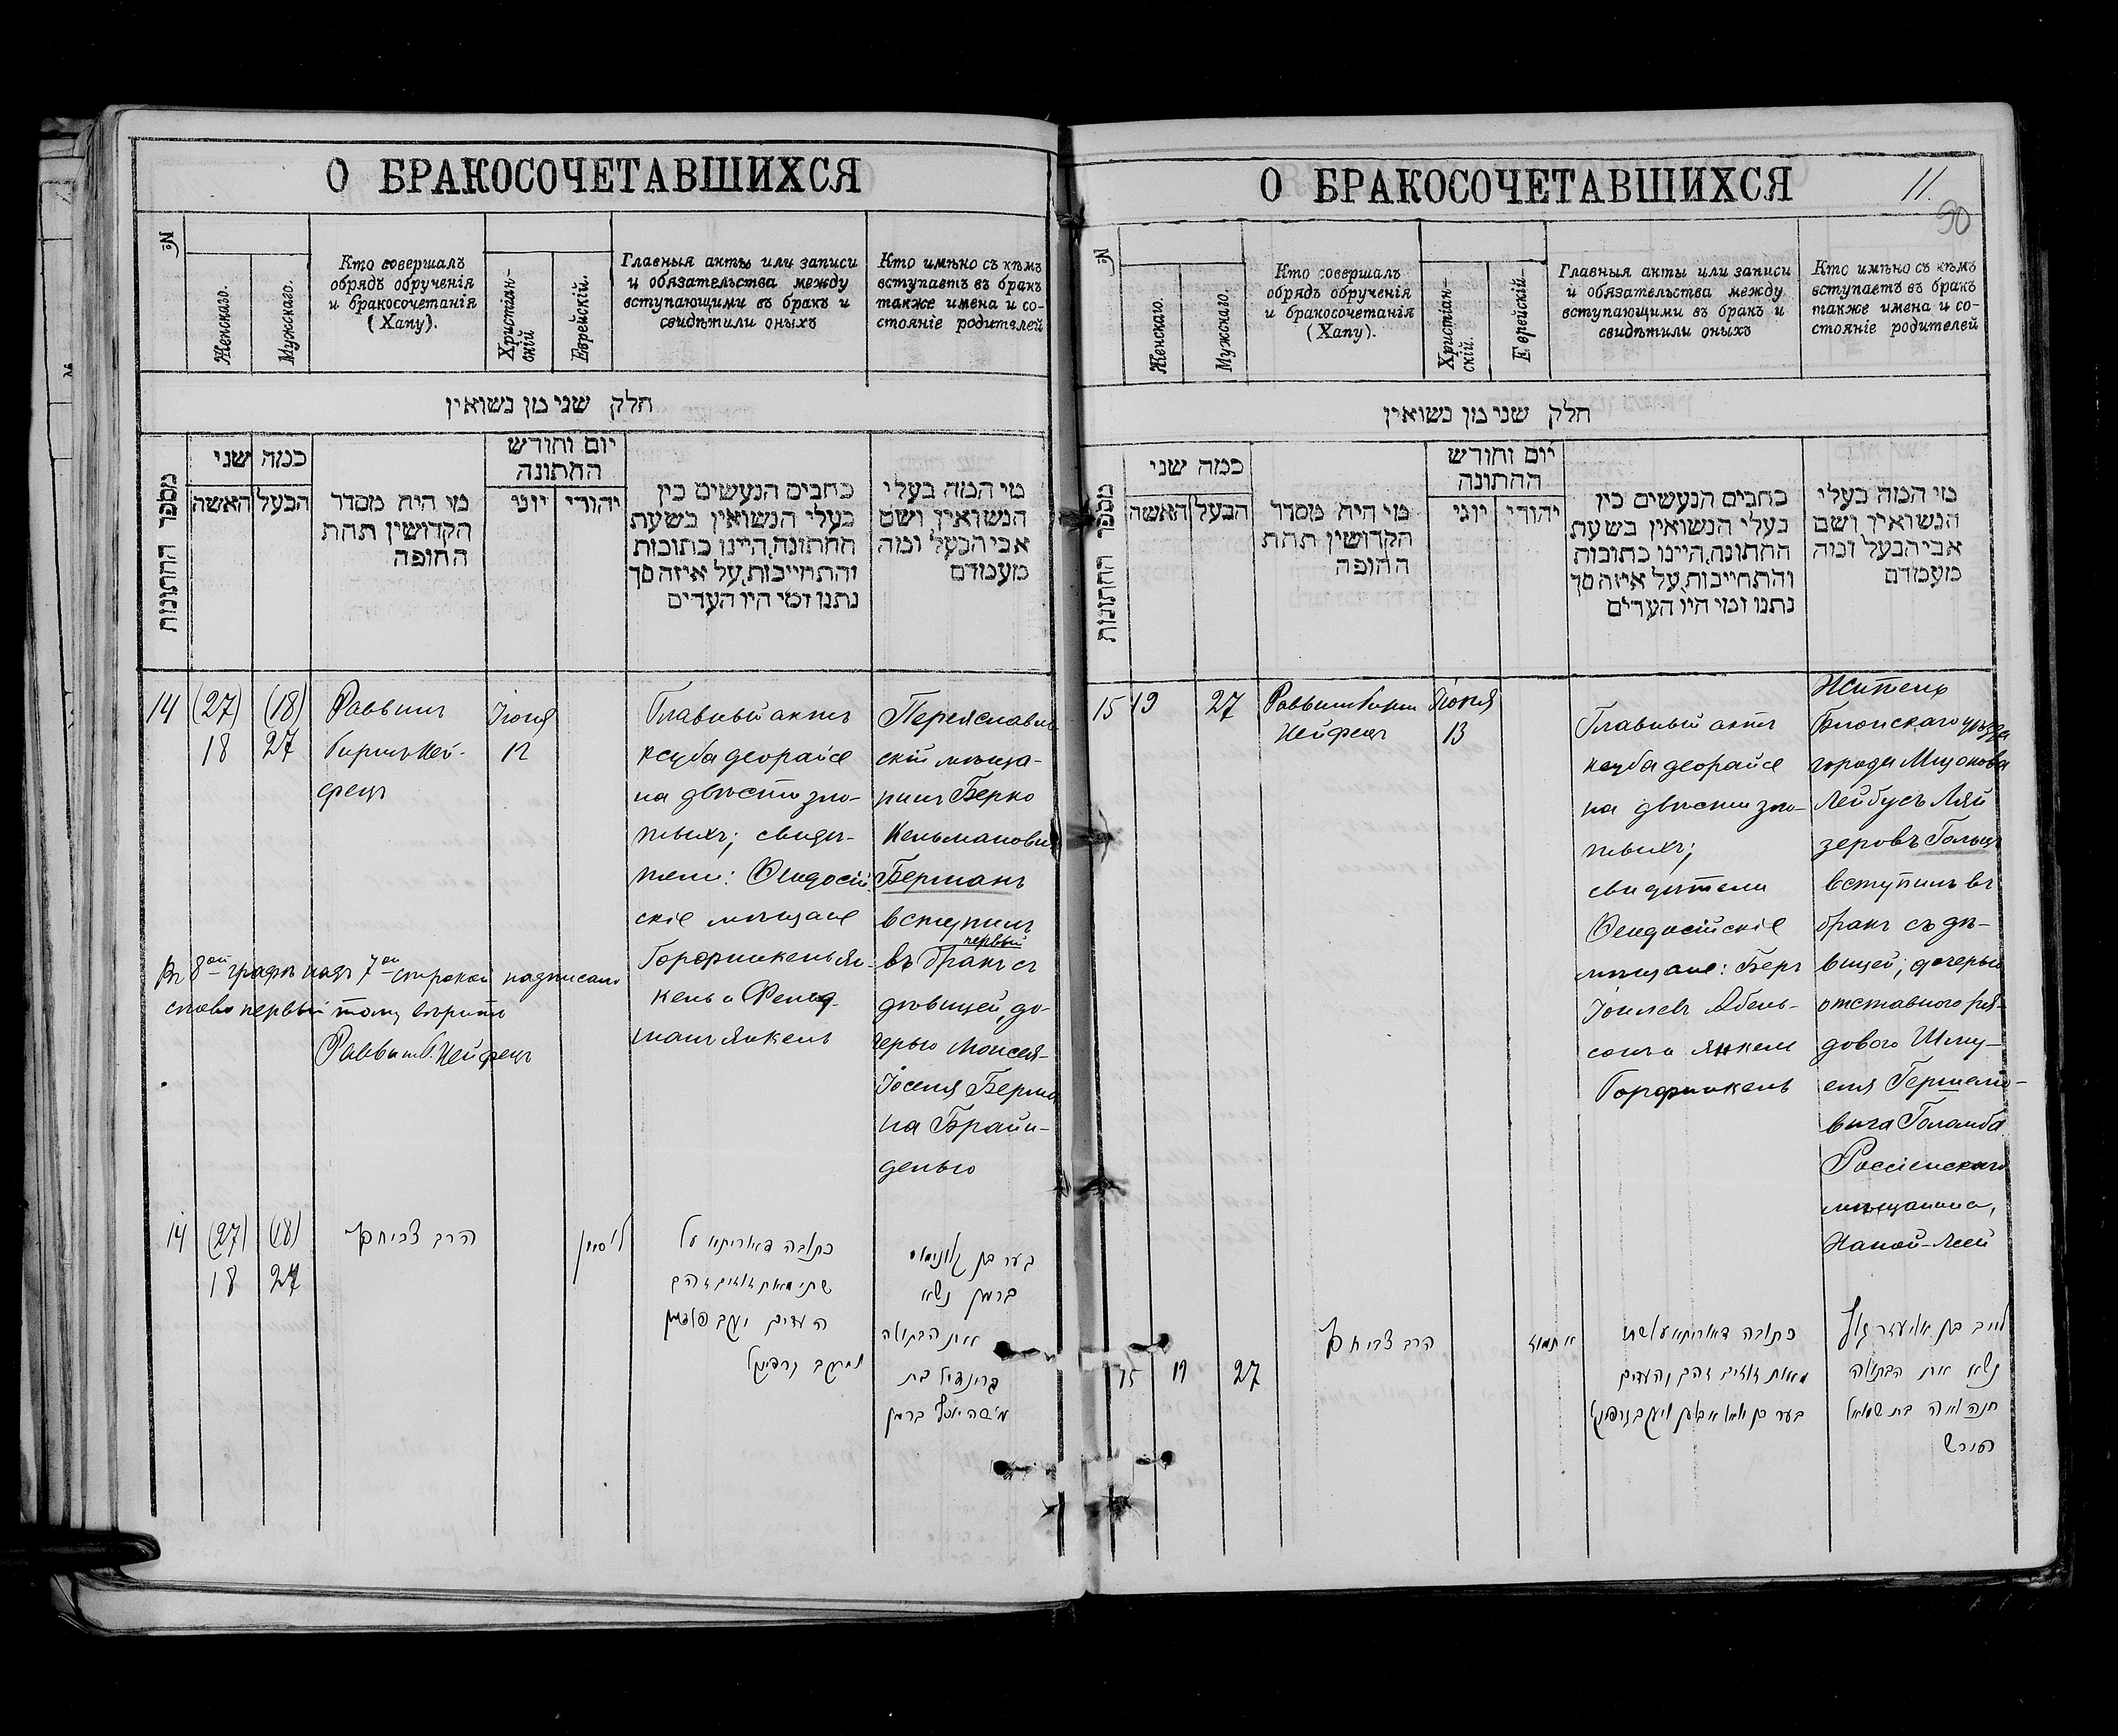 О БРАКОСОЧЕТАВШИХСЯ
№
Женскаго.
Мужскаго.
Кто совершалъ
обрядъ обрученія
и бракосочетанія
(Хапу).
Христіан-
скій
Еврейскій.
Главныя акты или записи
и обязательства между
вступающими въ бракъ и
свидѣтили оныхъ
Кто имѣно съ кѣмъ
вступаетъ въ бракъ
также имена и со-
стояніе родителей
חלק שני מן נשואין
מספר החתונות
כמה שני
האשה
הבעל
מי היה מסדר
הקדושין תחת
החופה
יום וחודש
החתונה
יוני
יהודי
כתבים הנעשים בין
בעלי הנשואין בשעת
החתונה, היינו כתובות
והתחייבות, על איזה סך
נתנו ומי היו העדים
מי המה בעלי
הנשואין ושם
אבי הבעל ומה
מעמדם
14
(27)
18
(18)
27
Раввинъ
Хей-
фецъ
Іюня
12
Главный актъ
ксуба деорайсе
на двѣсти зло-
тыхъ; свидѣ-
тели: Ѳеодосій-
скіе мѣщане
Горфинкель Ян-
кель и
Янкель
Переяслав
скій мѣща-
нинъ Берко
Кельманович
Берманъ
вступилъ
первый
въ бракъ съ
дѣвицей, до-
черью Моисея-
Іоселя Берма
на Брайн-
делью
Въ 8ой графѣ надъ 7ой строкой надписано
слово первый тому вѣрить
Раввинъ Б. Хейфецъ
14
(27)
18
(18)
27
הרב
כתובה דאורייתא על
שתי מאות זהב
העדים יעקב
ברמן נשא
את הבתולה
בריינדיל בת
משה יוסף ברמן
О БРАКОСОЧЕТАВШИХСЯ
11.
90
№
Женскаго.
Мужскаго.
Кто совершалъ
обрядъ обрученія
и бракосочетанія
(Хапу).
Христіан-
скій.
Еврейскій.
Главныя акты или записи
и обязательства между
вступающими въ бракъ и
свидѣтили оныхъ
Кто имѣно съ кѣмъ
вступаетъ въ бракъ
также имена и со-
стояніе родителей
חלק שני מן נשואין
מספר החתונות
כמה שני
האשה
הבעל
מי היה מסדר
הקדושין תחת
החופה
יום וחודש
החתונה
יוני
יהודי
כתבים הנעשים בין
בעלי הנשואין בשעת
החתונה, היינו כתובות
והתחייבות, על איזה סך
נתנו ומי היו העדים
מי המה בעלי
הנשואין ושם
אבי הבעל ומה
מעמדם
15
19
27
Раввинъ
Хейфецъ
Іюня
13
Главный актъ
ксуба деорайсе
на двѣсти зло-
тыхъ;
свидѣтели
Ѳеодосійскіе
мѣщане: Беръ
Іоилевъ Абель-
сонъ и Янкель
Горфинкель
Житель
Блонскаго уѣзда
города Мщонова
Лейбусъ Ляй
зеровъ Гольцъ
вступилъ въ
бракъ съ дѣ-
вицей, дочерью
отставного ря-
дового Шму-
еля Гершено-
вича Голамба
Россіенскаго
мѣщанина,
Ханой-Леей
15
19
27
הרב
א תמוז
כתובה דאורייתא שתי
מאות זהב והעדים
לייב בן אליעזר
נשא את הבתולה
חנה לאה בת שמואל